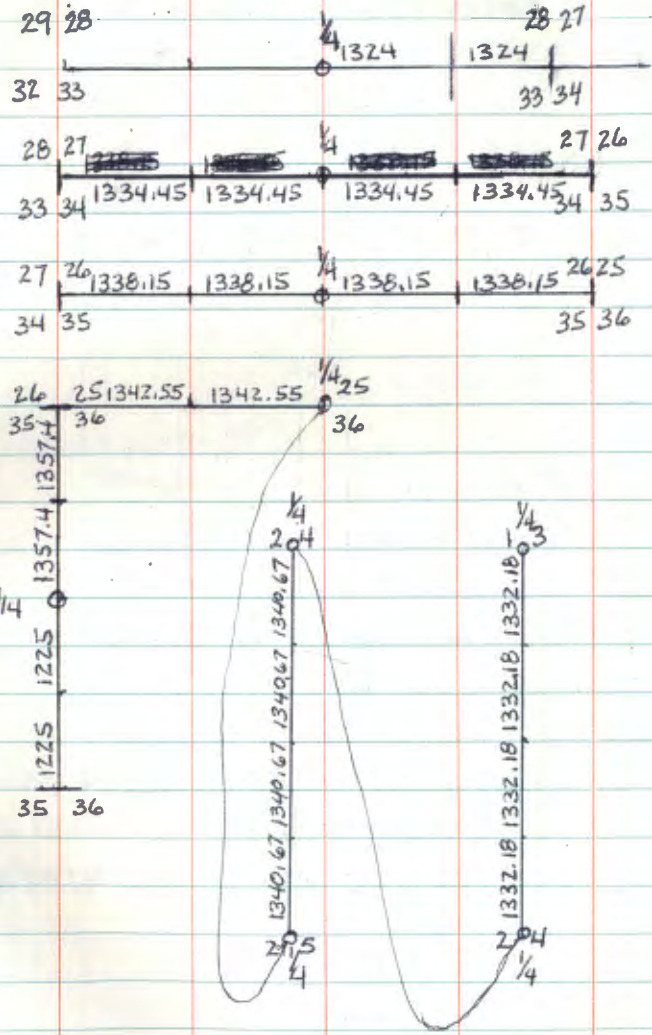 29 28 1/4 28 27
1324 1324
32 33 33 34
28 27 1/4 27 26
1334.45 1334.45 1334.45 1334.45
33 34 34 35
27 26 1/4 26 25
1338.15 1338.15 1338.15 1338.15
34 35 35 36
26 25 1342.55 1342.55 1/4 25
35 36 36
1357.4
1357.4
1/4
1225
1225
35 36
1/4
24
1340.67
1340.67
1340.67
1340.67
25
1/4
1/4
13
1332.18
1332.18
1332.18
1332.18
24
1/4